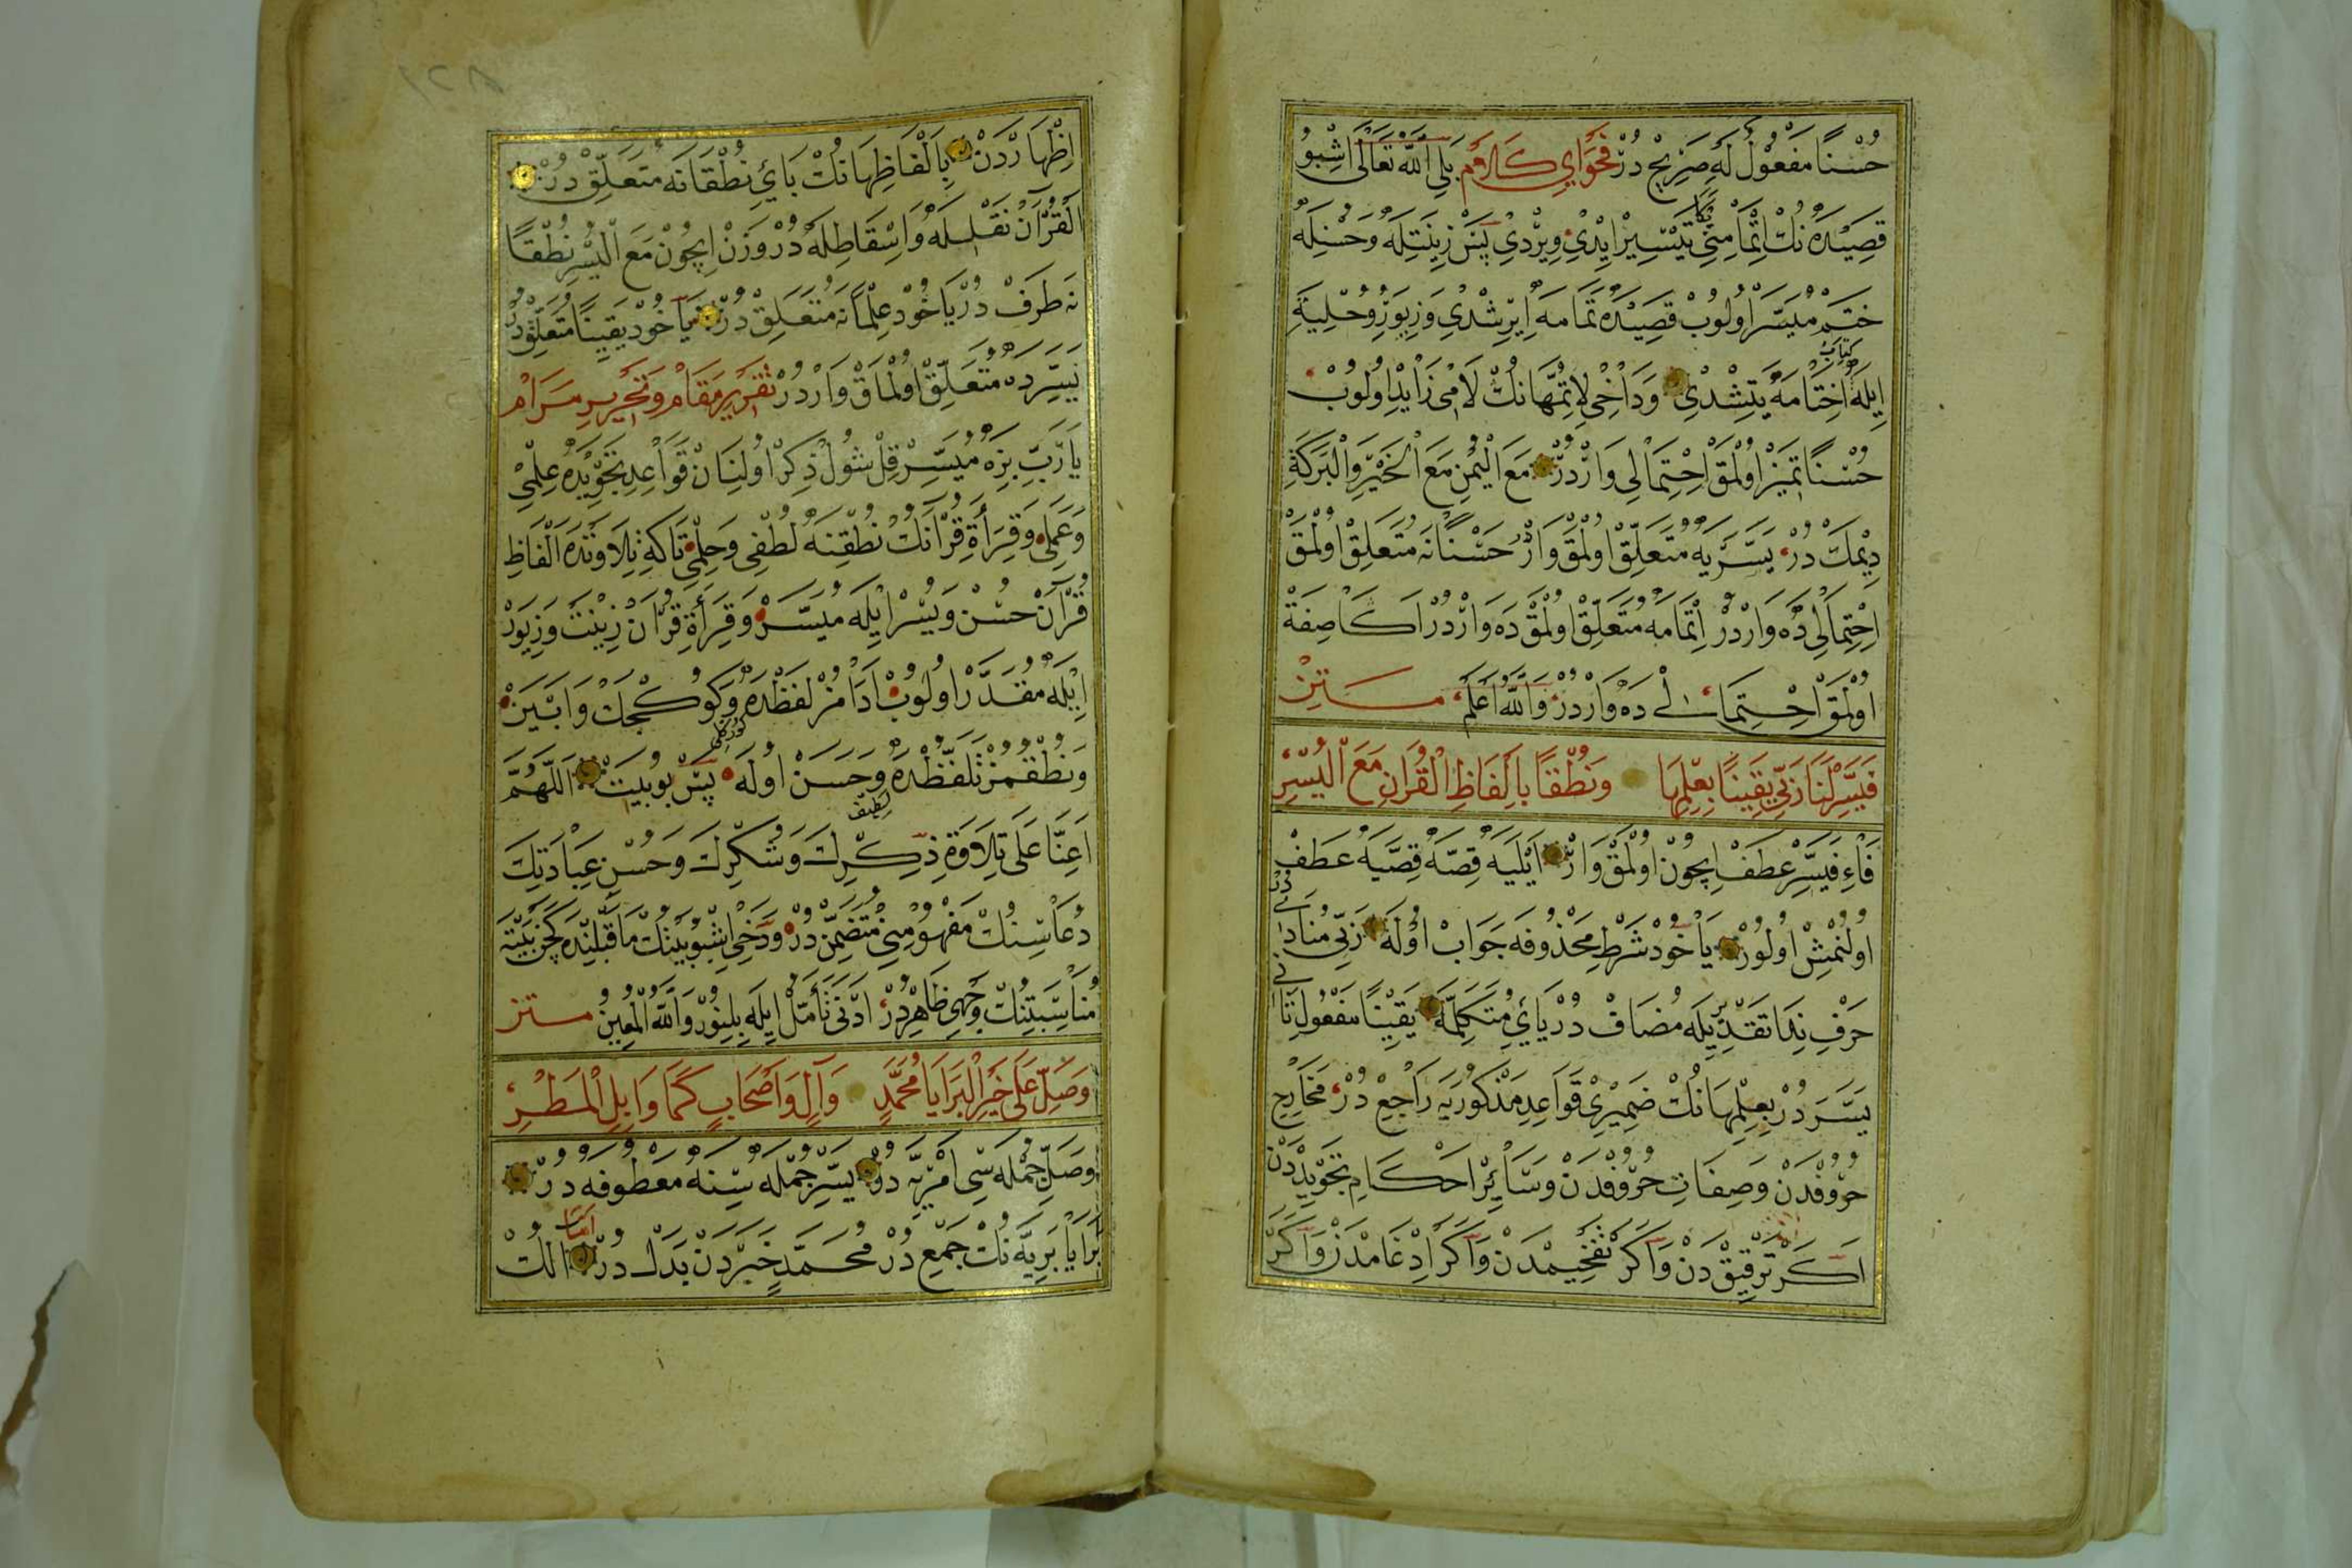 حُسْنًا مَفْعُولُ لَهِ صَرِيحْ دُرْ فَحْوَايِ كَلَامْ بَلِي اللّٰهُ تَعَالٰى اِشْبُو
قَصِيدَهْ نُكْ اِتْمَامِنِي تَيْسِيرْ اِيْدِيْ وِيرْدِيْ پَسْ زِينَتِلَهْ وَحُسْنِلَهْ
خَتَمْ مُيَسَّرْ اُولُوبْ قَصِيدَهْ تَمَامَهْ اِيرِشْدِيْ وَزِيوَرْ وَحُلِيَّهِ
كِتَابْ
اِيلَهْ اِخْتَامَهْ يَتِشْدِيْ وَدَاخِي لِاِتْمَّهَانُكْ لَامْى زَايْدْ اُولُوبْ
حُسْنًا تَمْيِزْ اُولْمَقْ اِحْتِمَالِى وَارْدُرْ مَعَ الْيُمْنِ مَعَ الْخَيْرِ وَالْبَرَكَةِ
دِيْمَكْ دُرْ يَسَّرَيَهْ مُتَعَلِّقْ اُولْمَقْ وَارْ حُسْنًانَهْ مُتَعَلِّقْ اُولْمَقْ
اِحْتِمَالِى دَهْ وَارْدُرْ اِتْمَامَهْ مُتَعَلِّقْ اُولْمَقْ دَهْ وَارْدُرْ اَكَا صِفَةْ
اُولْمَقْ اِحْتِمَالِى دَهْ وَارْدُرْ وَاللّٰهُ اَعْلَمُ مَتِنْ
فَيَسِّرْ لَنَا رَبِّى يَقِينًا بِعِلْمِهَا وَنُطْقًا بِاَلْفَاظِ الْقُرَانِ مَعَ الْيُسْرِ
فَاءِ فَيَسِّرْ عَطَفْ اِيچُونْ اُولْمَقْ وَارْ اَيْلَيَهْ قِصَّهْ قِصَّيَهْ عَطَفْ
اُولُنْمِشْ اُولُورْ يَاخُودْ شَرْطِ مَحْذُوفَهْ جَوَابْ اُولَهْ رَبِّى مُنَادَا
حَرْفِ نِدَا تَقْدِيرِيلَهْ مُضَافْ دُرْ يَائِ مُتَكَلِّمَهْ يَقِينًا مَفْعُولِ ثَانِى
يَسَّرَ دُرْ بِعِلْمِهَانُكْ ضَمِيرِى قَوَاعِدِ مَذْكُورَيَهْ رَاجِعْ دُرْ مَخَارِجِ
حُرُوفْدَنْ وَصِفَاتِ حُرُوفْدَنْ وَسَائِرْ اَحْكَامِ تَجْوِيدْدَنْ
اَكَرْ تَرْقِيقْ دَنْ وَاَكَرْ تَفْخِيمْدَنْ وَاَكَرْ اِدْغَامْدَنْ وَاَكَرْ
اِظْهَارْدَنْ بِاَلْفَاظِهَانُكْ بَائِ نُطْقَانَهْ مُتَعَلِّقْ دُرْ
الْقُرْآنْ نَقْلِيلَهْ وَاِسْقَاطِلَهْ دُرْ وَزَنْ اِيچُونْ مَعَ الْيُسْرِ نُطْقًا
نَهْ طَرَفْ دُرْ يَاخُودْ عِلْمًانَهْ مُتَعَلِّقْ دُرْ يَاخُودْ يَقِينًا مُتَعَلِّقْ دُرْ
يَسِّرْ دَهْ مُتَعَلِّقْ اُولْمَاقْ وَارْدُرْ تَقْرِيرِ مَقَامْ وَتَحْرِيرِ مَرَامْ
يَارَبِّ بِزَهْ مُيَسِّرْ قِلْ شُولْ ذِكِرْ اُولِنَانْ قَوَاعِدِ تَجْوِيدَهْ عِلْمِى
وَعَمَلِى وَقِرَأَةِ قُرْآنُكْ نُطْقِنَهْ لُطْفِى وَحِلْمِى تَاكَهْ تِلَاوَتْدَهْ اَلْفَاظِ
قُرْآنْ حُسْنْ وَيُسْرْ اِيْلَهْ مُيَسَّرْ وَقِرَأَةِ قُرْآنْ زِينَتْ وَزِيوَرْ
اِيْلَهْ مُقَدَّرْ اُولُوبْ اَدَامُزْ لَفْظْدَهْ وَكُوكْجَكْ وَابْيَنْ
وَنُطْقُمُزْ تَلَفُّظْدَهْ وَحَسَنْ اُولَهْ پَسْ بُوبَيْتْ اَللّٰهُمَّ
لَطِيفْ
اَعِنَّا عَلَى تِلَاوَةِ ذِكْرِكَ وَشُكْرِكَ وَحُسْنِ عِبَادَتِكَ
دُعَاسِنُكْ مَفْهُومِنِى مُتَضَمِّنْ دُرْ وَدَخِى اِشْبُو بَيْتُكْ مَاقَبْلِنْدَهْ كَچَنْ بَيْتَهْ
مُنَاسَبَتِنُكْ وَجْهِى ظَاهِرْدُرْ اَدْنَى تَأَمُّلْ اِيلَهْ بِلِنُورْ وَاللّٰهُ الْمُعِينُ مَتِنْ
وَصَلِّ عَلَى خَيْرِ الْبَرَايَا مُحَمَّدٍ وَآلٍ وَاَصْحَابٍ كَمَا وَابِلِ الْمَطَرِ
وَصَلِّ جُمْلَهْ سِى اَمْرِيَّهْ دُرْ يَسِّرْ جُمْلَهْ سِنَهْ مَعْطُوفَهْ دُرْ
بَرَايَا بَرِيَّهْ نُكْ جَمْعِ دُرْ مُحَمَّدٍ خَيْرْدَنْ بَدَلْ دُرْ الُكْ